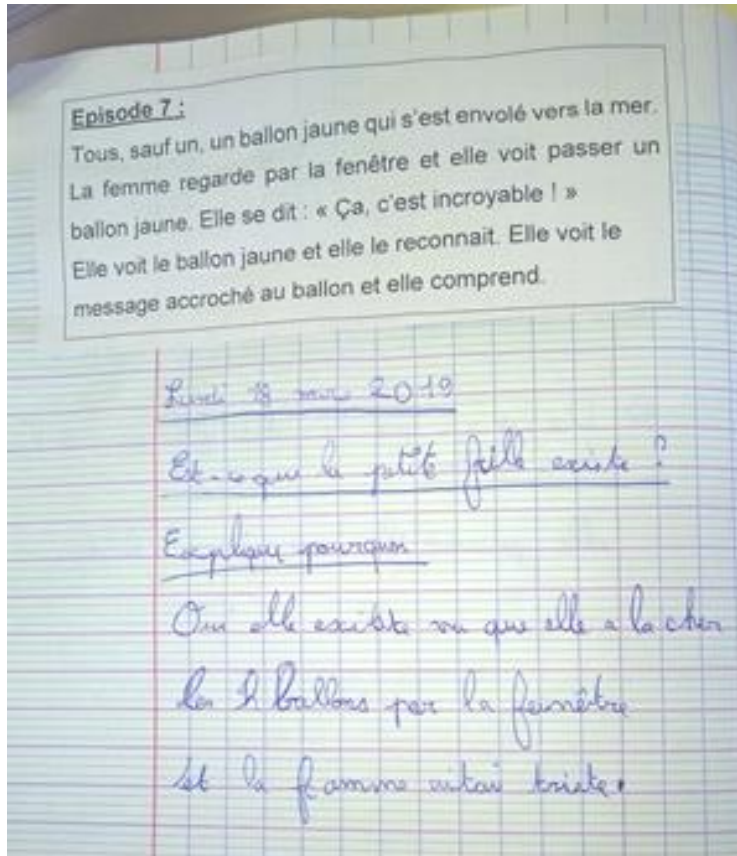 Episode 7 :
Tous, sauf un, un ballon jaune qui s'est envolé vers la mer.
La femme regarde par la fenêtre et elle voit passer un
ballon jaune. Elle se dit : « Ça, c'est incroyable ! »
Elle voit le ballon jaune et elle le reconnait. Elle voit le
message accroché au ballon et elle comprend.
Lundi 18 mars 2019
Est-ce que la petite fille existe ?
Explique pourquoi
Oui elle existe vu que elle a la cher
les ballons par la feunêtre
et la famme était triste.